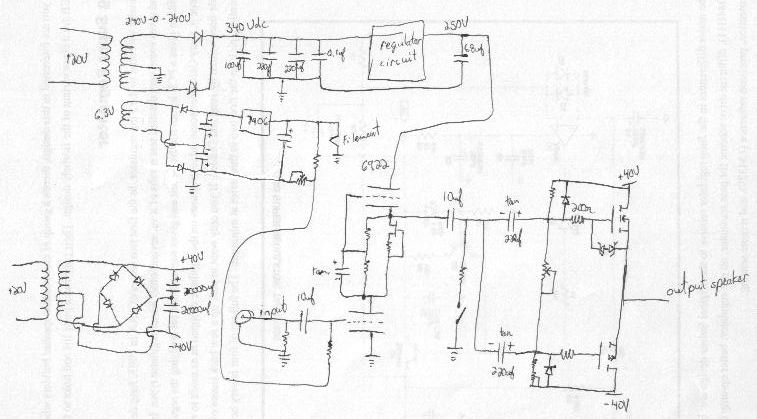 240V-0-240V
340Vdc
250V
120V
regulator
circuit
100uf
220uf
0.1uf
68uf
6.3V
7906
Filament
6922
10uf
tan
220uf
200Ω
+40V
120V
+40V
20000uf
20000uf
-40V
tan
input
10uf
output speaker
tan
220uf
-40V